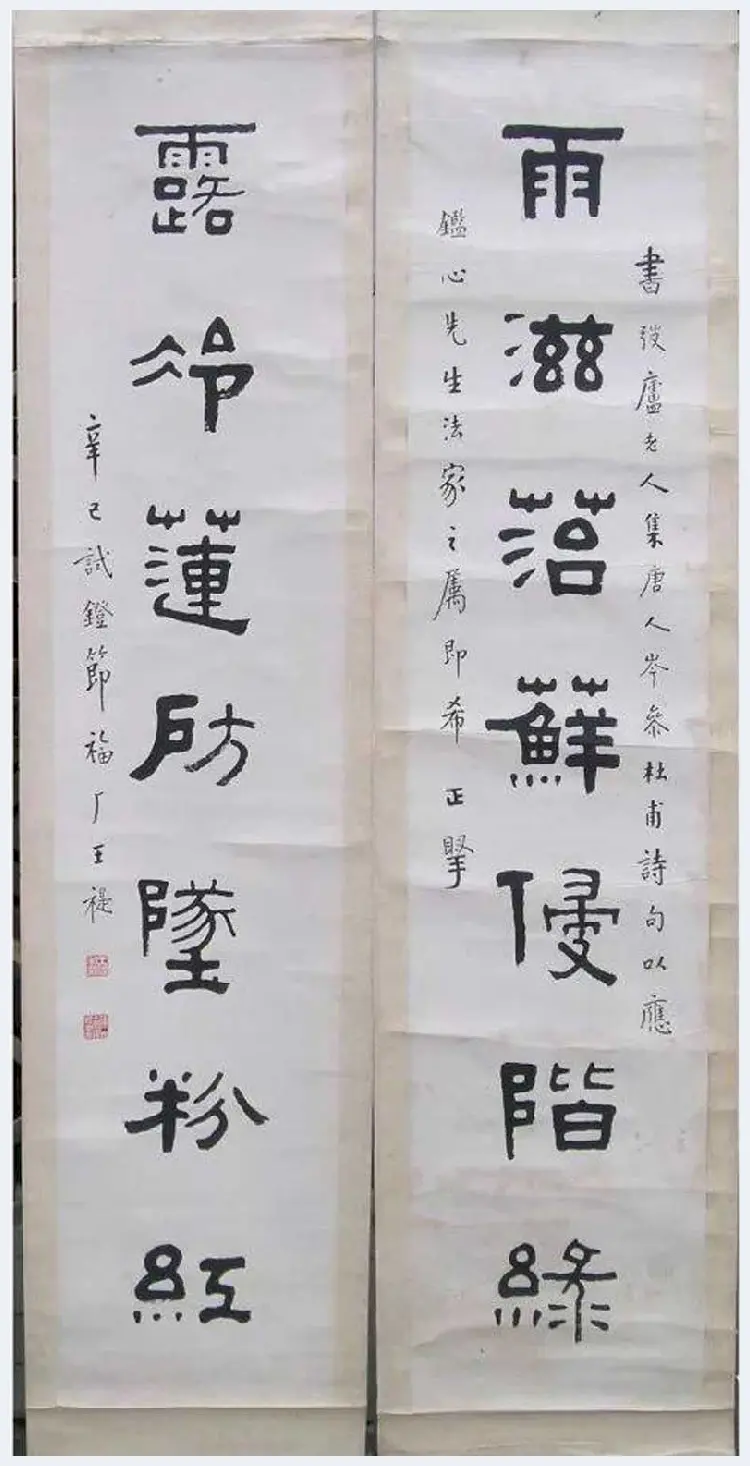 書弢廬老人集唐人岑參杜甫詩句以應
雨滋菭蘚侵階綠
鑑心先生法家之屬即希 正掔
露冷蓮房墜粉紅
辛巳試鐙節福厂王禔